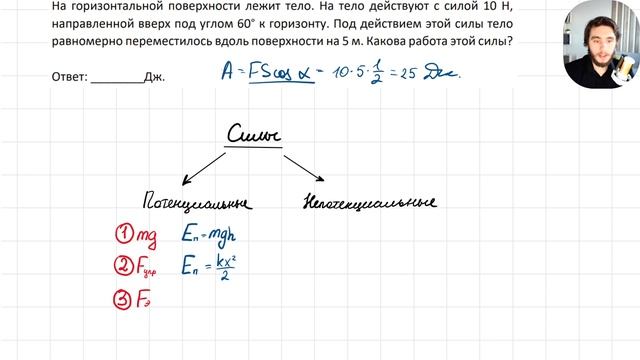 На горизонтальной поверхности лежит тело. На тело действуют с силой 10 Н,
направленной вверх под углом 60° к горизонту. Под действием этой силы тело
равномерно переместилось вдоль поверхности на 5 м. Какова работа этой силы?
Ответ: ________Дж. A = FScos α = 10·5·1/2 = 25 Дж.
Силы
Потенциальные Непотенциальные
1 mg Eп = mgh
2 Fупр Eп = kx²/2
3 Fэ